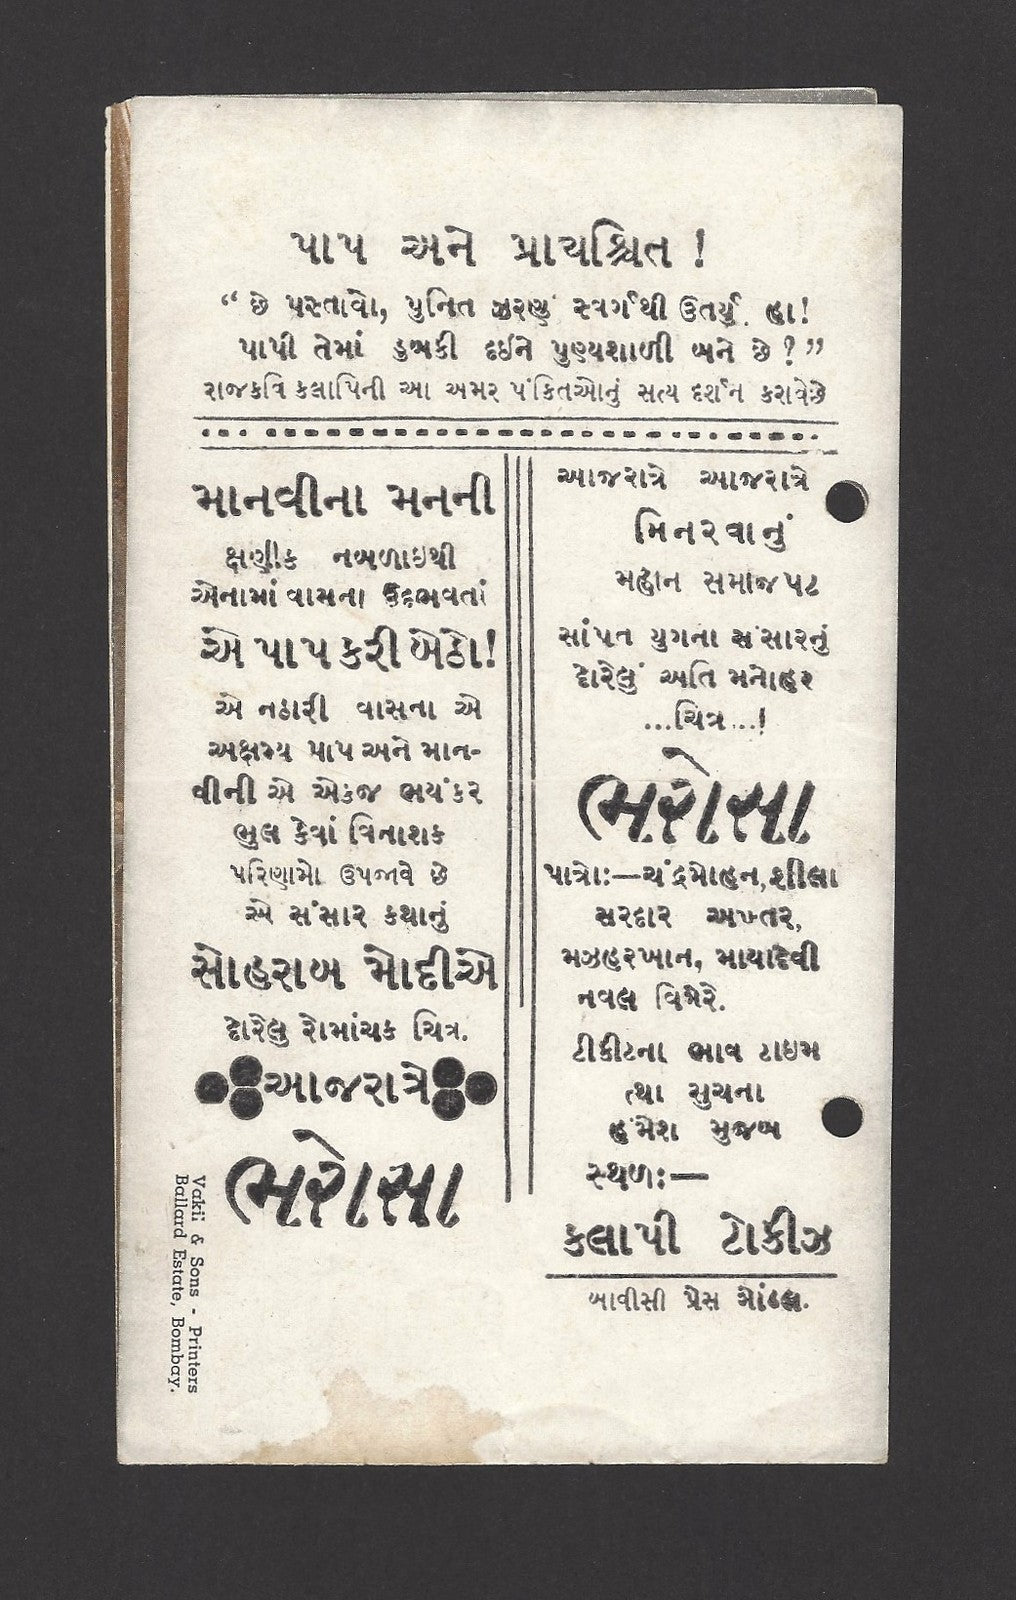 પાપ અને પ્રાયશ્ચિત !
“ છે પસ્તાવો, પુનિત ઝરણું સ્વર્ગથી ઉતર્યું હા!
પાપી તેમાં ડુબકી દઈને પુણ્યશાળી બને છે ? ”
રાજકવિ કલાપિની આ અમર પંકિતઓનું સત્ય દર્શન કરાવેછે
માનવીના મનની
ક્ષણીક નબળાઇથી
એનામાં વાસના ઉદભવતાં
એ પાપ કરી બેઠો!
એ નઠારી વાસના એ
અક્ષમ્ય પાપ અને માન-
વીની એ એકજ ભયંકર
ભુલ કેવાં વિનાશક
પરિણામો ઉપજાવે છે
એ સંસાર કથાનું
સોહરાબ મોદીએ
દોરેલુ રોમાંચક ચિત્ર.
આજરાત્રે
ભરોસા
આજરાત્રે આજરાત્રે
મિનરવાનું
મહાન સમાજપટ
સાંપત યુગના સંસારનું
દોરેલું અતિ મનોહર
...ચિત્ર...!
ભરોસા
પાત્રો:—ચંદ્રમોહન, શીલા
સરદાર અખ્તર,
મઝહરખાન, માયાદેવી
નવલ વિગેરે.
ટીકીટના ભાવ ટાઇમ
તથા સુચના
હંમેશ મુજબ
સ્થળ:—
કલાપી ટોકીઝ
બાવીસી પ્રેસ ગોંડલ.
Vakil & Sons - Printers
Ballard Estate, Bombay.